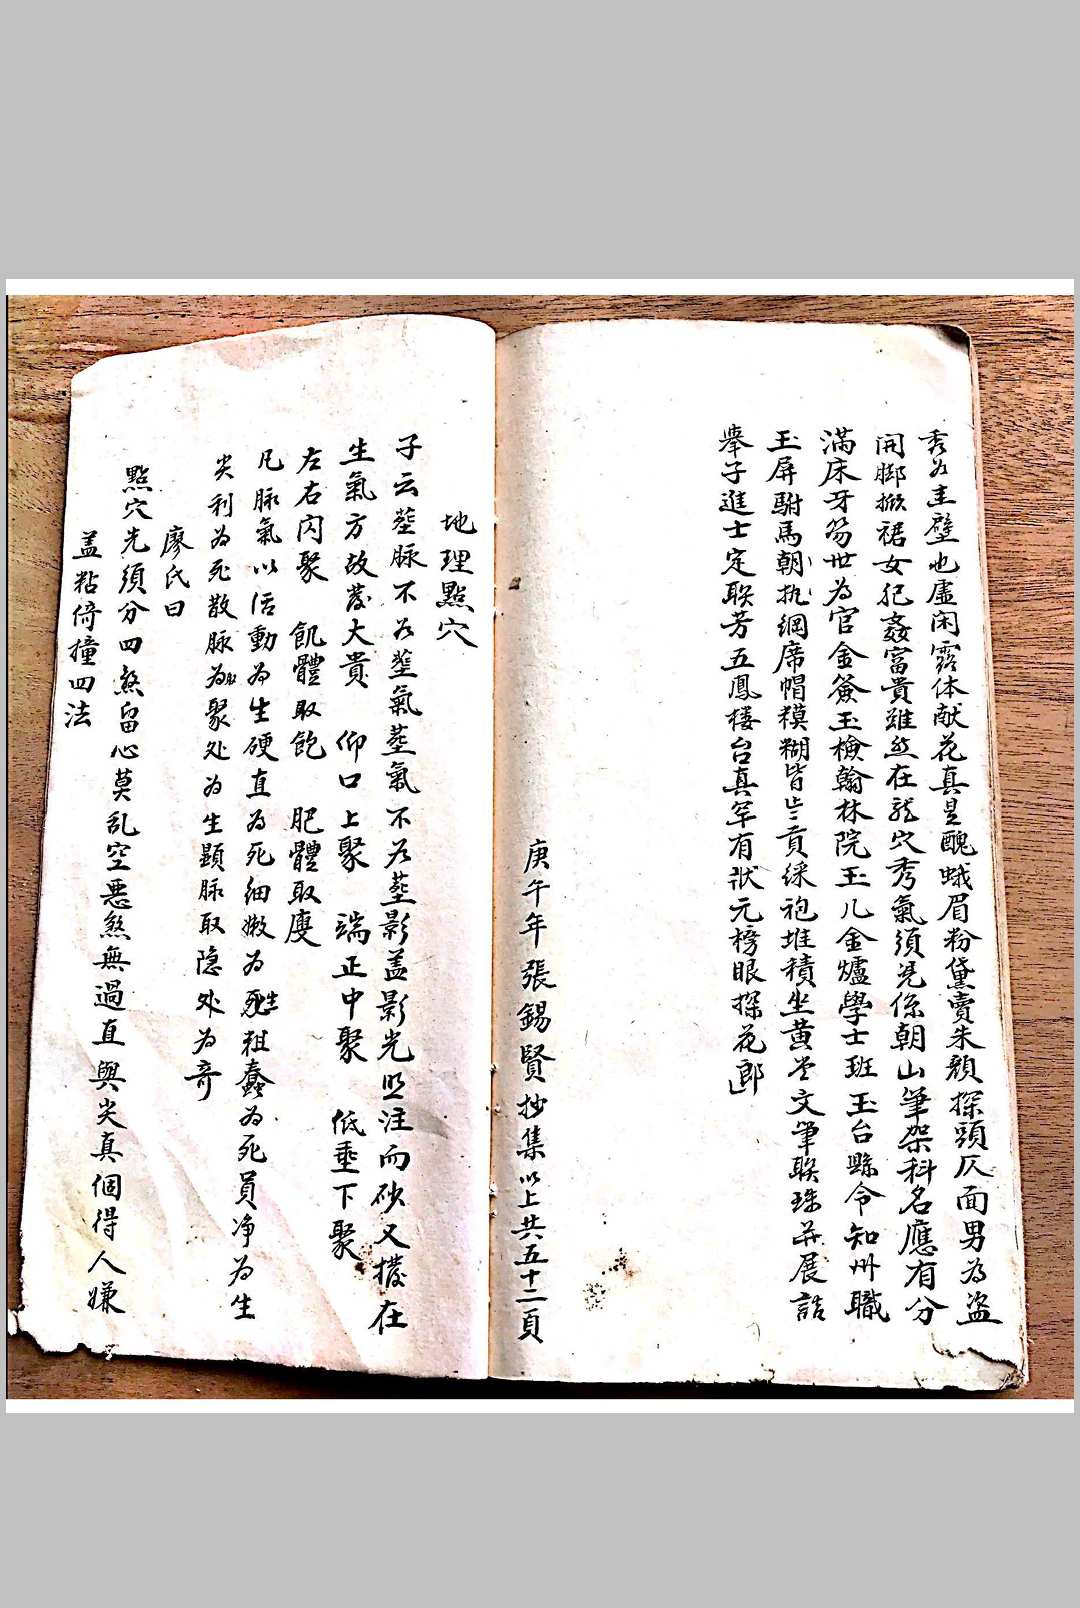 秀为圭璧也虚闲露体献花真是醜蛾眉粉黛賣朱顏探頭仄面男為盗
開脚掀裙女犯姦富貴雖然在龍穴秀氣須凭係朝山筆架科名應有分
滿床牙笏世为官金簽玉檢翰林院玉几金爐學士班玉台縣令知州職
玉屏駙馬朝執綱席帽模糊皆出貢綵袍堆積坐黃堂文筆联珠并展誥
舉子進士定联芳五鳳楼台真罕有狀元榜眼探花郎
庚午年張錫賢抄集以上共五十二頁
地理點穴
子云塟脉不为塟氣塟氣不为塟影盖影光照注而砂又攔在
生氣方故发大貴 仰口上聚 端正中聚 低垂下聚
左右闪聚 飢體取飽 肥體取廋
凡脉氣以活動为生硬直为死细嫩为生粗蠢为死員净为生
尖利为死散脉为取聚处为生顯脉取隐处为奇
廖氏曰
點穴先須分四煞留心莫乱空恶煞無過直與尖真個得人嫌
盖粘倚撞四法